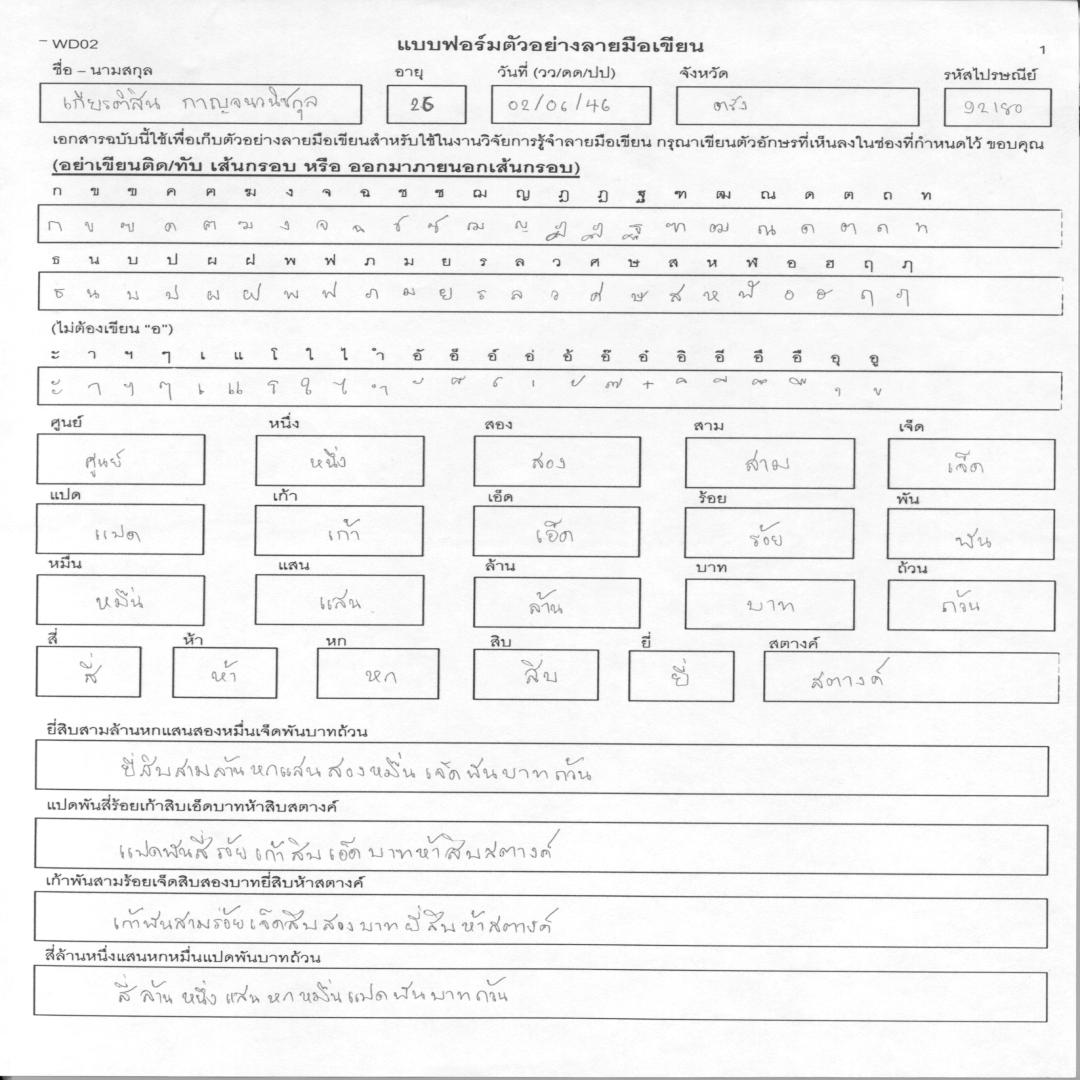 WD02 แบบฟอร์มตัวอย่างลายมือเขียน 1
ชื่อ – นามสกุล อายุ วันที่ (วว/ดด/ปป) จังหวัด รหัสไปรษณีย์
เกียรติสิน กาญจนวนิชกุล 26 02/06/46 ตรัง 92180
เอกสารฉบับนี้ใช้เพื่อเก็บตัวอย่างลายมือเขียนสำหรับใช้ในงานวิจัยการรู้จำลายมือเขียน กรุณาเขียนตัวอักษรที่เห็นลงในช่องที่กำหนดไว้ ขอบคุณ
(อย่าเขียนติด/ทับ เส้นกรอบ หรือ ออกมาภายนอกเส้นกรอบ)
ก ข ฃ ค ฅ ฆ ง จ ฉ ช ซ ฌ ญ ฎ ฏ ฐ ฑ ฒ ณ ด ต ถ ท
ก ข ฃ ค ฅ ฆ ง จ ฉ ช ซ ฌ ญ ฎ ฏ ฐ ฑ ฒ ณ ด ต ถ ท
ธ น บ ป ผ ฝ พ ฟ ภ ม ย ร ล ว ศ ษ ส ห ฬ อ ฮ ฤ ฦ
ธ น บ ป ผ ฝ พ ฟ ภ ม ย ร ล ว ศ ษ ส ห ฬ อ ฮ ฤ ฦ
(ไม่ต้องเขียน “อ”)
ะ า ฯ ๆ เ แ โ ใ ไ ำ อั อ็ อ์ อ่ อ้ อ๊ อ๋ อิ อี อึ อื อุ อู
ะ า ฯ ๆ เ แ โ ใ ไ ำ ั ็ ์ ่ ้ ๊ ๋ ิ ี ึ ื ุ ู
ศูนย์ หนึ่ง สอง สาม เจ็ด
ศูนย์ หนึ่ง สอง สาม เจ็ด
แปด เก้า เอ็ด ร้อย พัน
แปด เก้า เอ็ด ร้อย พัน
หมื่น แสน ล้าน บาท ถ้วน
หมื่น แสน ล้าน บาท ถ้วน
สี่ ห้า หก สิบ ยี่ สตางค์
สี่ ห้า หก สิบ ยี่ สตางค์
ยี่สิบสามล้านหกแสนสองหมื่นเจ็ดพันบาทถ้วน
ยี่สิบสามล้านหกแสนสองหมื่นเจ็ดพันบาทถ้วน
แปดพันสี่ร้อยเก้าสิบเอ็ดบาทห้าสิบสตางค์
แปดพันสี่ร้อยเก้าสิบเอ็ดบาทห้าสิบสตางค์
เก้าพันสามร้อยเจ็ดสิบสองบาทยี่สิบห้าสตางค์
เก้าพันสามร้อยเจ็ดสิบสองบาทยี่สิบห้าสตางค์
สี่ล้านหนึ่งแสนหกหมื่นแปดพันบาทถ้วน
สี่ล้านหนึ่งแสนหกหมื่นแปดพันบาทถ้วน